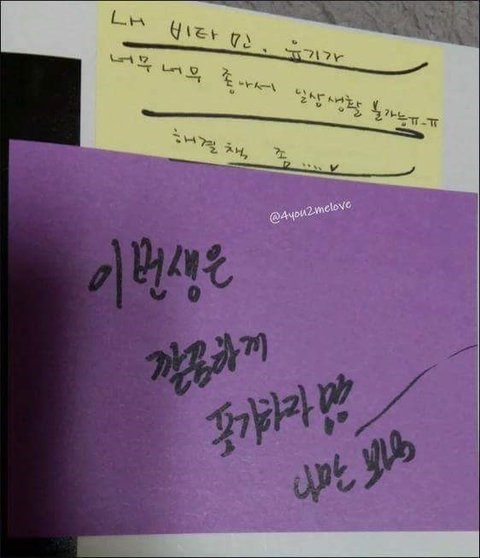 내 비타민, 윤기가
너무너무 좋아서 일상생활 불가능ㅠ-ㅠ
해결책 좀....♥
@4you2melove
이번생은
깔끔하게
포기하라
나만 봐